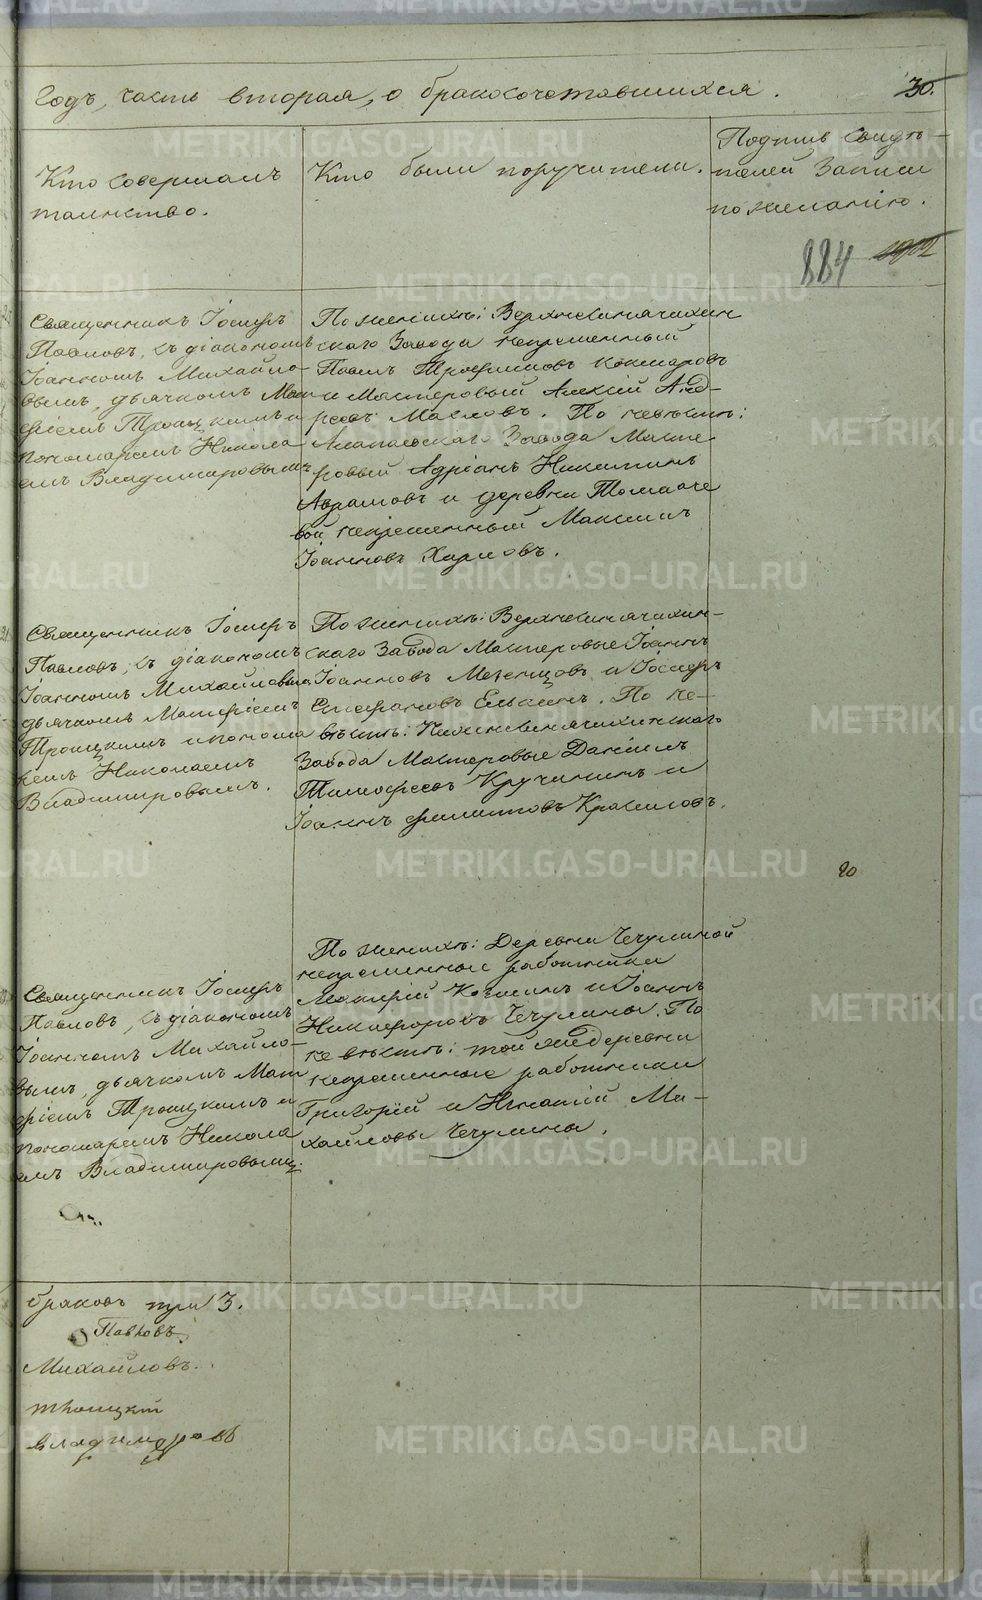 годъ, часть вторая, о бракосочетавшихся.
30.
Кто совершалъ
таинство.
Кто были поручители.
Подпись свидѣ-
телей записи
по желанію.
884
Священникъ Іосифъ
Павловъ, съ діакономъ
Іоанномъ Михайло-
вымъ, дьячкомъ Мат
фіемъ Троицкимъ и
пономаремъ Никола
емъ Владимировымъ
По женихѣ: Верхнесинячихин
скаго завода непременный
Павелъ Трофимовъ Кокшаровъ
и мастеровый Алексій Анд-
реевъ Масловъ. По невѣстѣ:
Алапаевскаго завода масте
ровый Адріанъ Никитинъ
Абрамовъ и деревни Толмаче
вой непременный Максимъ
Іоанновъ Харловъ.
Священникъ Іосифъ
Павловъ, съ діакономъ
Іоанномъ Михайловымъ,
дьячкомъ Матфіемъ
Троицкимъ и понома
ремъ Николаемъ
Владимировымъ.
По женихѣ: Верхнесинячихин-
скаго завода мастеровые Іоаннъ
Іоанновъ Мезенцовъ и Іосифъ
Стефановъ Елькинъ. По не-
вѣстѣ: Нижнесинячихинскаго
завода мастеровые Даніилъ
Тимофеевъ Кручининъ и
Іоаннъ Филипповъ Красиловъ.
20
Священникъ Іосифъ
Павловъ, съ діакономъ
Іоанномъ Михайло-
вымъ, дьячкомъ Мат
фіемъ Троицкимъ и
пономаремъ Никола
емъ Владимировымъ.
По женихѣ: деревни Чечулиной
непременные работники
и Іоаннъ
Никифоровъ Чечулины. По
невѣстѣ: той же деревни
непременные работники
Григорій и Игнатій Ми-
хайловы Чечулины.
браковъ три 3.
Павловъ
Михайловъ.
Троицкій
Владимеровъ
METRIKI.GASO-URAL.RU